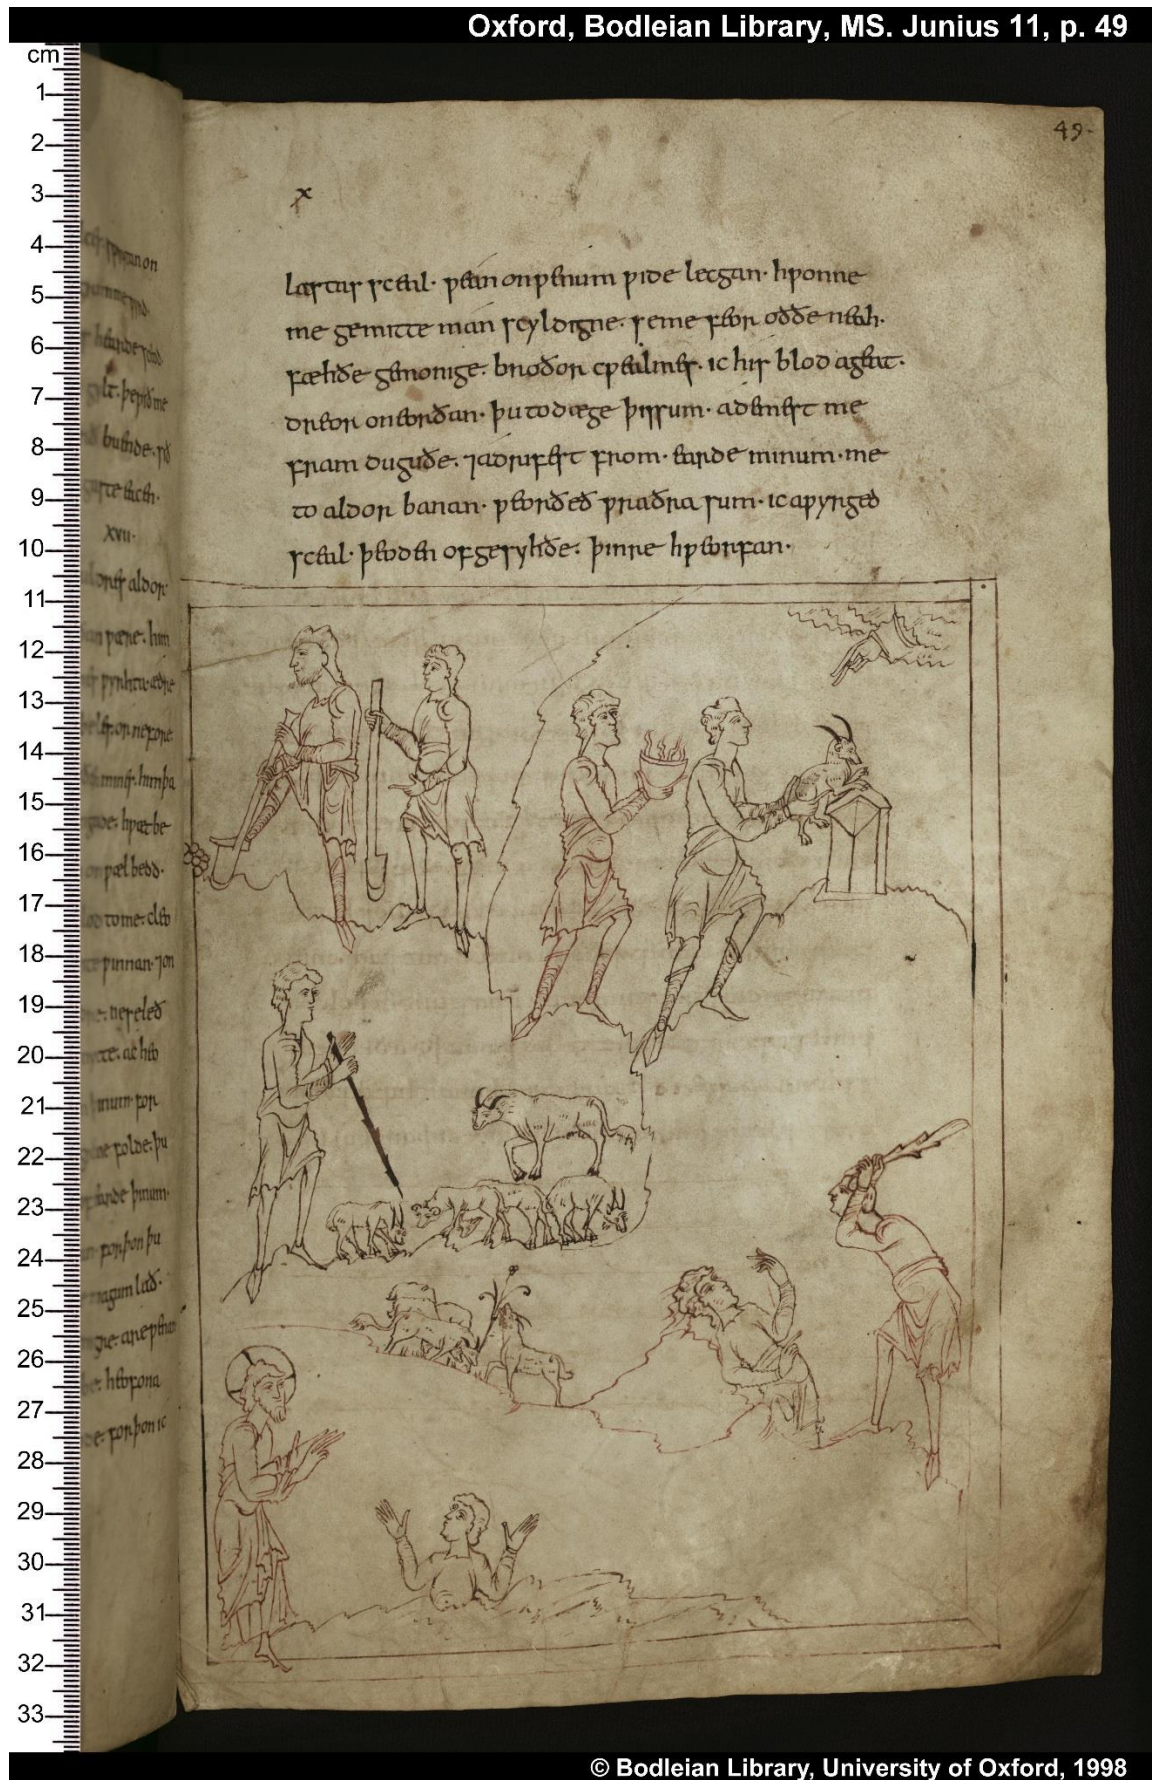 Oxford, Bodleian Library, MS. Junius 11, p. 49
cm
1
2
3
4
5
6
7
8
9
10
11
12
13
14
15
16
17
18
19
20
21
22
23
24
25
26
27
28
29
30
31
32
33
xvii·
49·
x
lastas sceal· ƿean onƿenum ƿide lecgan· hƿonne
me gemitte man scyldigne· seme feor oððe neah·
fæhðe gemonige· broðor cƿealmes· ic his blod ageat·
dreor oneorðan· þu todæge þissum· ademest me
fram duguðe· ⁊adrifest from· earde minum· me
to aldor banan· ƿeorðeð ƿraðra sum· ic aƿyrged
sceal· þeoden ofgesyhðe· þinre hƿeorfan·
© Bodleian Library, University of Oxford, 1998